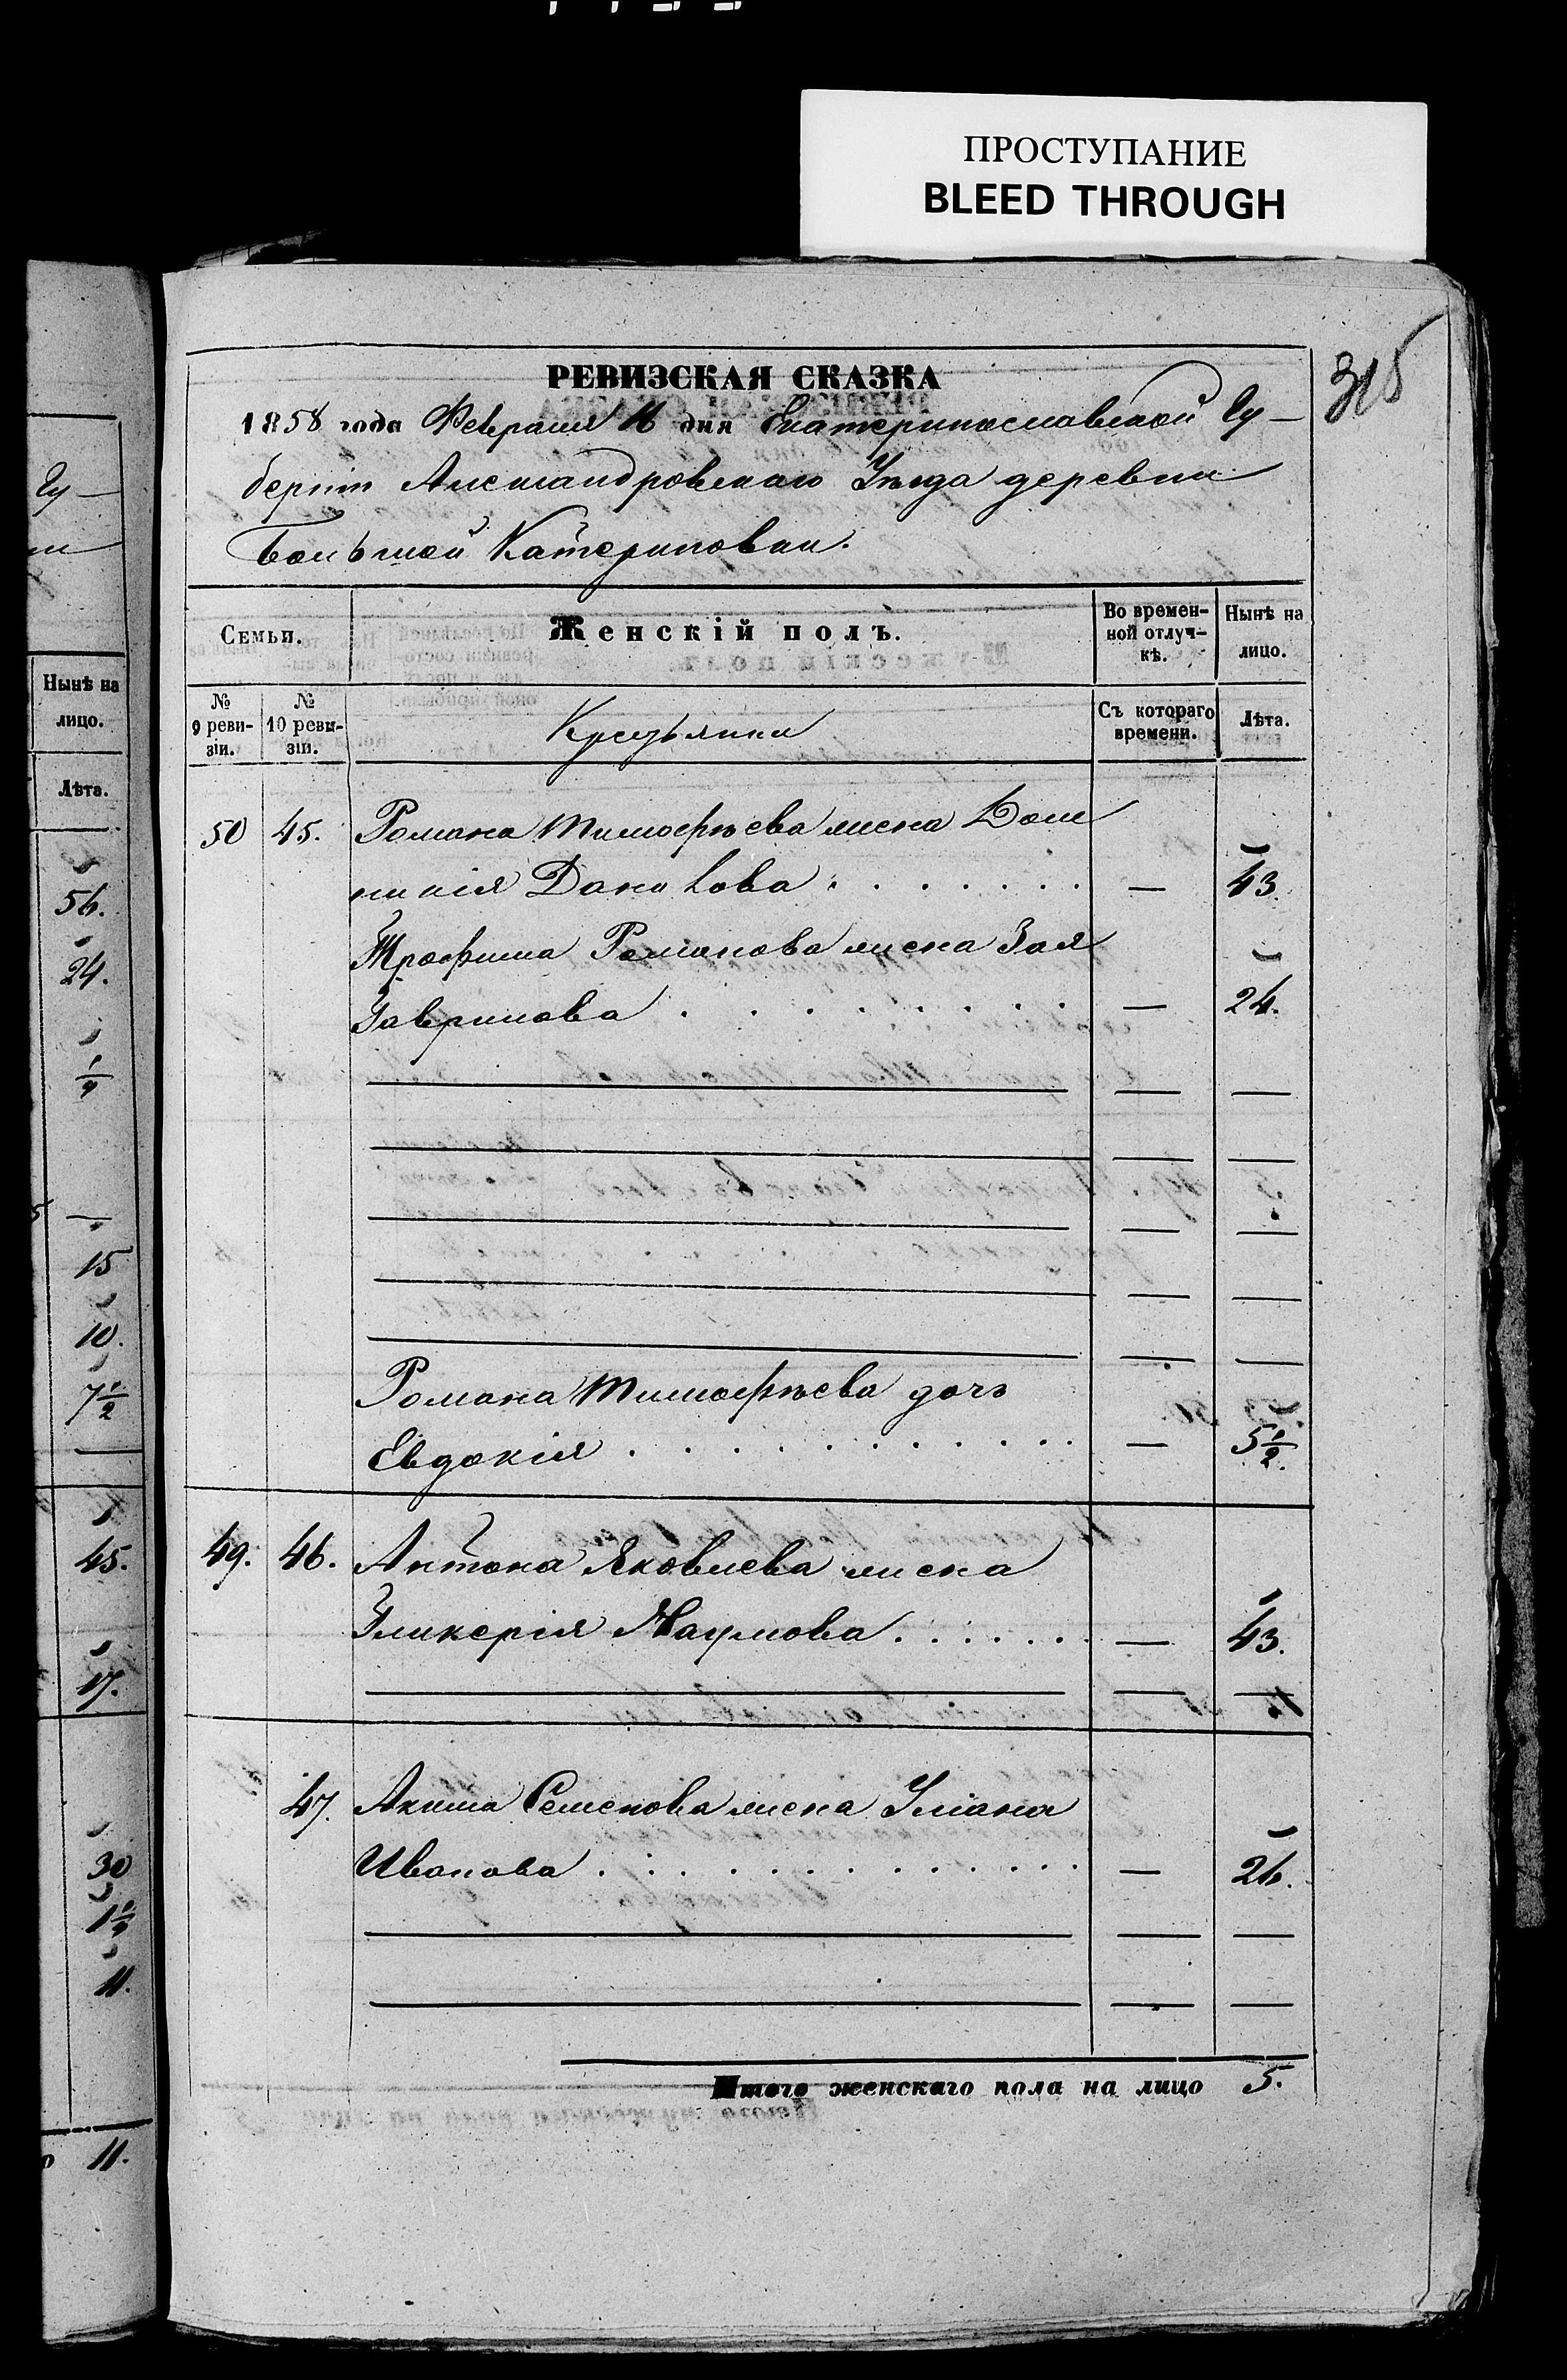 ПРОСТУПАНИЕ
BLEED THROUGH
315
РЕВИЗСКАЯ СКАЗКА
1858 года Февраля 16 дня Екатеринославской Гу-
берніи Александровскаго Уѣзда деревни
Большой Катериновки.
Семьи.
Женскій полъ.
Во времен-
ной отлуч-
кѣ.
Нынѣ на
лицо.
№
9 реви-
зіи.
№
10 реви-
зіи.
Крестьянки
Съ котораго
времени.
Лѣта.
50 45. Романа Тимофѣева жена Дом
никія Данилова — 43.
Трофима Романова жена Зоя
Гаврилова — 24.
Романа Тимофѣева дочь
Евдокія — 5 1/2.
49. 46. Антона Яковлева жена
Гликерія Наумова — 43.
47. Акима Семенова жена Уліана
Иванова — 26.
Итого женскаго пола на лицо 5.
Гу-
Нынѣ на
лицо.
Лѣта.
56.
24.
15
10.
7 1/2
45.
17.
30
11.
11.